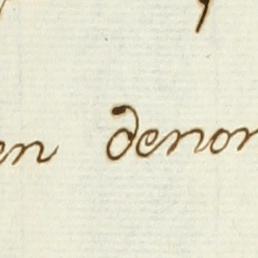 en denon